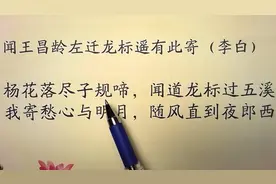 闻王昌龄左迁龙标遥有此寄（李白）
杨花落尽子规啼，闻道龙标过五溪
我寄愁心与明月，随风直到夜郎西